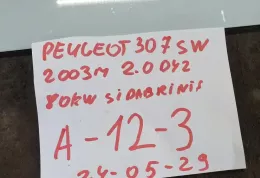 PEUGEOT 307 SW
2003M 2.0 DYZ
80KW SIDABRINIS
A-12-3
24-05-29